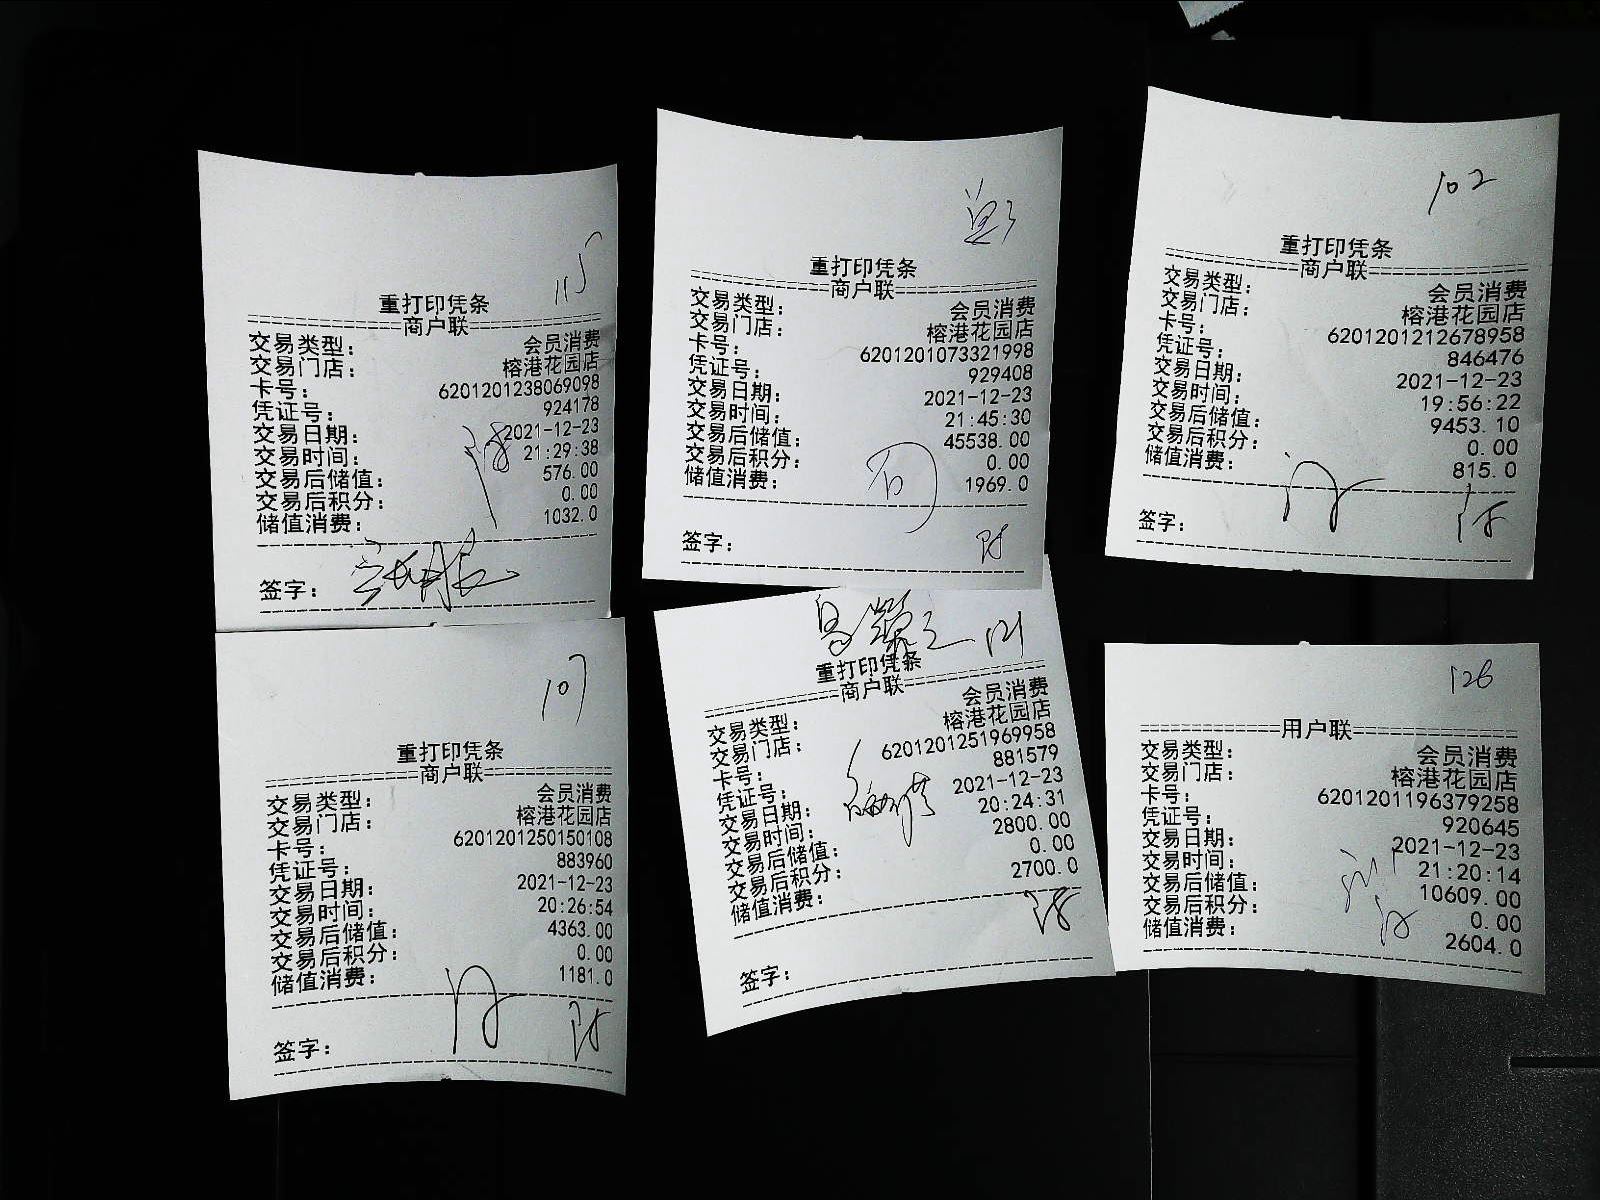 115
重打印凭条
商户联
交易类型： 会员消费
交易门店： 榕港花园店
卡号： 6201201238069098
凭证号： 924178
交易日期： 2021-12-23
交易时间： 21:29:38
交易后储值： 576.00
交易后积分： 0.00
储值消费： 1032.0
签字：
重打印凭条
商户联
交易类型： 会员消费
交易门店： 榕港花园店
卡号： 6201201073321998
凭证号： 929408
交易日期： 2021-12-23
交易时间： 21:45:30
交易后储值： 45538.00
交易后积分： 0.00
储值消费： 1969.0
签字：
102
重打印凭条
商户联
交易类型： 会员消费
交易门店： 榕港花园店
卡号： 6201201212678958
凭证号： 846476
交易日期： 2021-12-23
交易时间： 19:56:22
交易后储值： 9453.10
交易后积分： 0.00
储值消费： 815.0
签字：
107
重打印凭条
商户联
交易类型： 会员消费
交易门店： 榕港花园店
卡号： 6201201250150108
凭证号： 883960
交易日期： 2021-12-23
交易时间： 20:26:54
交易后储值： 4363.00
交易后积分： 0.00
储值消费： 1181.0
签字：
121
重打印凭条
商户联
交易类型： 会员消费
交易门店： 榕港花园店
卡号： 6201201251969958
凭证号： 881579
交易日期： 2021-12-23
交易时间： 20:24:31
交易后储值： 2800.00
交易后积分： 0.00
储值消费： 2700.0
签字：
126
用户联
交易类型： 会员消费
交易门店： 榕港花园店
卡号： 6201201196379258
凭证号： 920645
交易日期： 2021-12-23
交易时间： 21:20:14
交易后储值： 10609.00
交易后积分： 0.00
储值消费： 2604.0